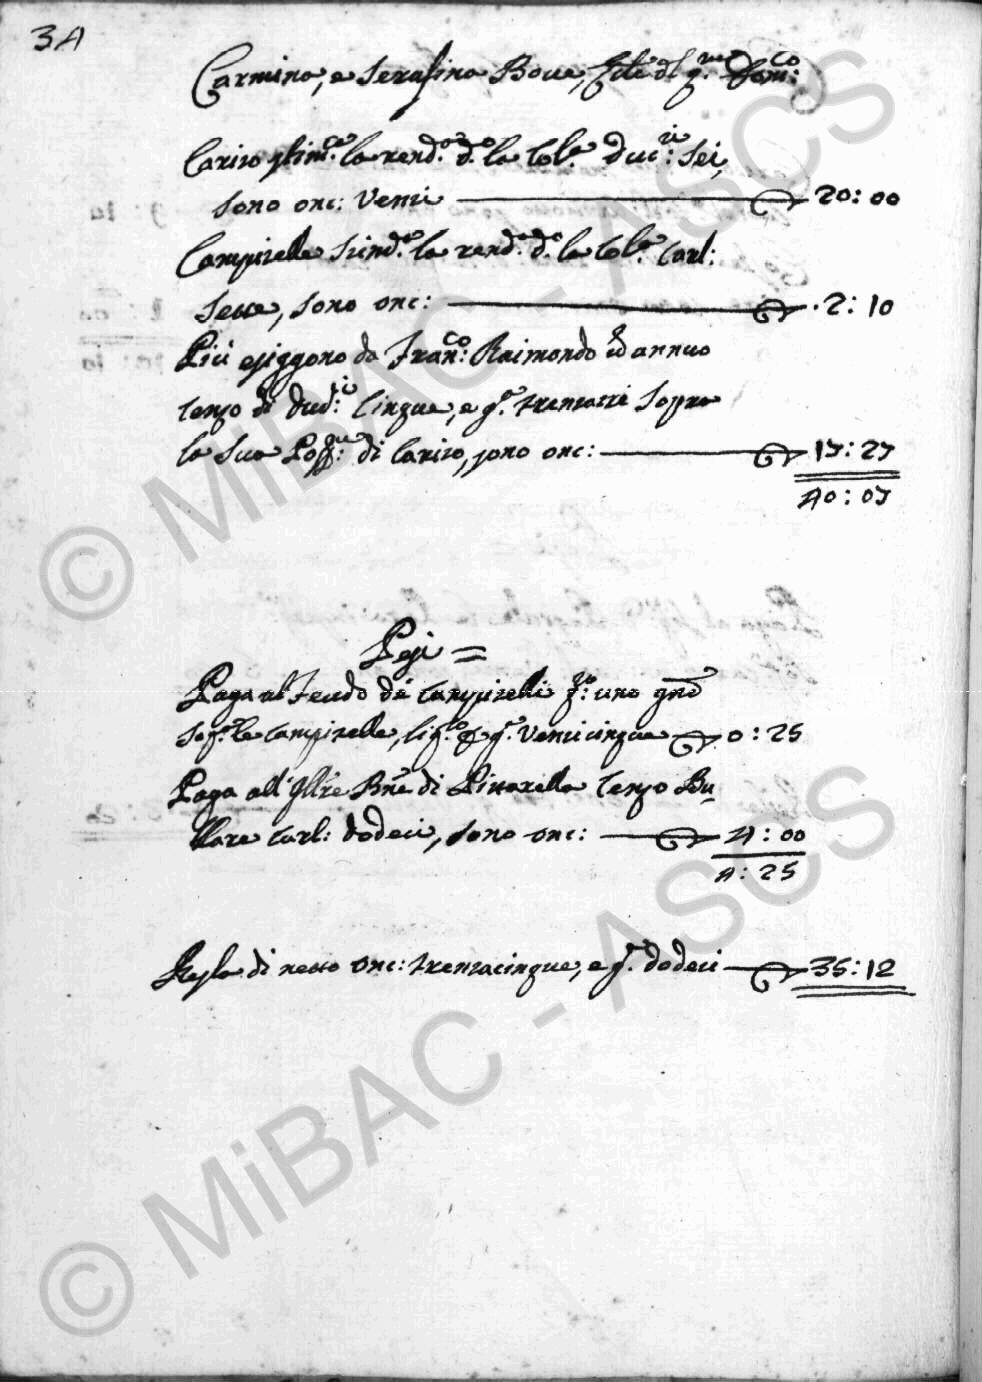 34
Carmina, e Serafina Boue, figlie del q.m Dom.co
Cariro stim.ta la rend.a d.a la Col.a Duc.ti: Sei,
sono onc: Venti 20: 00
Campirelle stim.o la rend.a d.a la Col.a Carl:
Sette, sono onc: 2: 10
Più esiggono da Fran.co: Raimondo annuo
Cenzo di Duc.ti: Cinque, e g.a trentatrè sopra
la sua Poss.ne: di Cariro, sono onc: 17: 27
40: 07
Pesi =
Paga al Feudo de Campirelli uno
sop.a le Campirelle, g.a Venticinque 0: 25
Paga all' Ill.re B.ne di Pittarella Cenzo Bu„
llare Carl: dodeci, sono onc: 4: 00
4: 25
Resta di netto onc: trentacinque, e g.a dodeci 35: 12
© MiBAC - ASCS
© MiBAC - ASCS